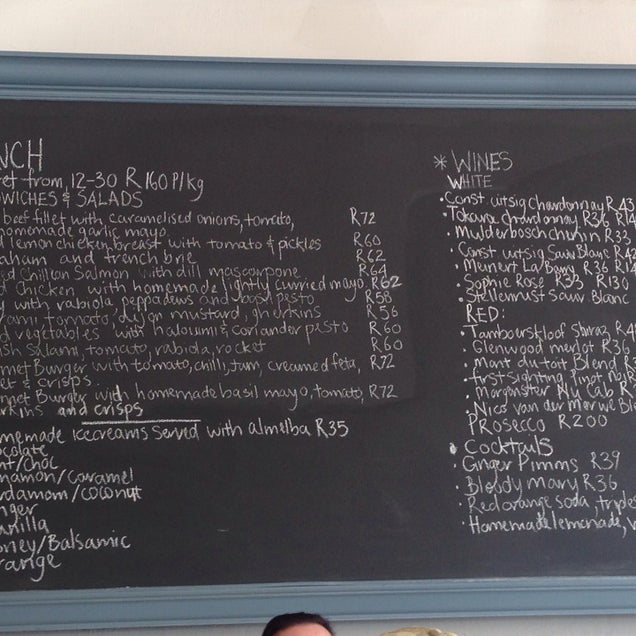 NCH
et from, 12-30 R160 P/kg
WICHES & SALADS
beef fillet with caramelised onions, tomato, R72
homemade garlic mayo
d lemon chicken breast with tomato & pickles R60
aham and french brie R62
ed Chillon Salmon with dill mascarpone R64
d Chicken with homemade lightly curried mayo, R62
with rabiola peppadews and basil pesto R58
ami tomato, dijon mustard, gherkins R56
d vegetables with haloumi & coriander pesto R60
ish salami, tomato, rabiola, rocket R60
met Burger with tomato, chilli, jam, creamed feta, R72
et & crisps
met Burger with homemade basil mayo, tomato, R72
rkins and crisps
memade icecreams served with almelba R35
colate
nt/choc
namon/Caramel
rdamom/coconut
nger
anilla
oney/Balsamic
range
* WINES
WHITE
• Const uitsig chardonnay R43
• Tokara chardonnay R36 R14
• Mulderbosch chenin R33
• Const uitsig Sauv Blanc R42
• Meinert La Barry R36 R1
• Sophie Rose R33 R130
• Stellenrust Sauv Blanc
RED:
• Tamboerskloof Shiraz R4
• Glenwood merlot R36
• Mont du toit Blend
• first sighting Pinot
• Morgenster Nu Cab R
• Nico van der Merwe Bl
PROSECCO R200
• Cocktails
• Ginger Pimms R39
• Bloody mary R36
• Red orange soda, triple
• Homemade lemonade, v